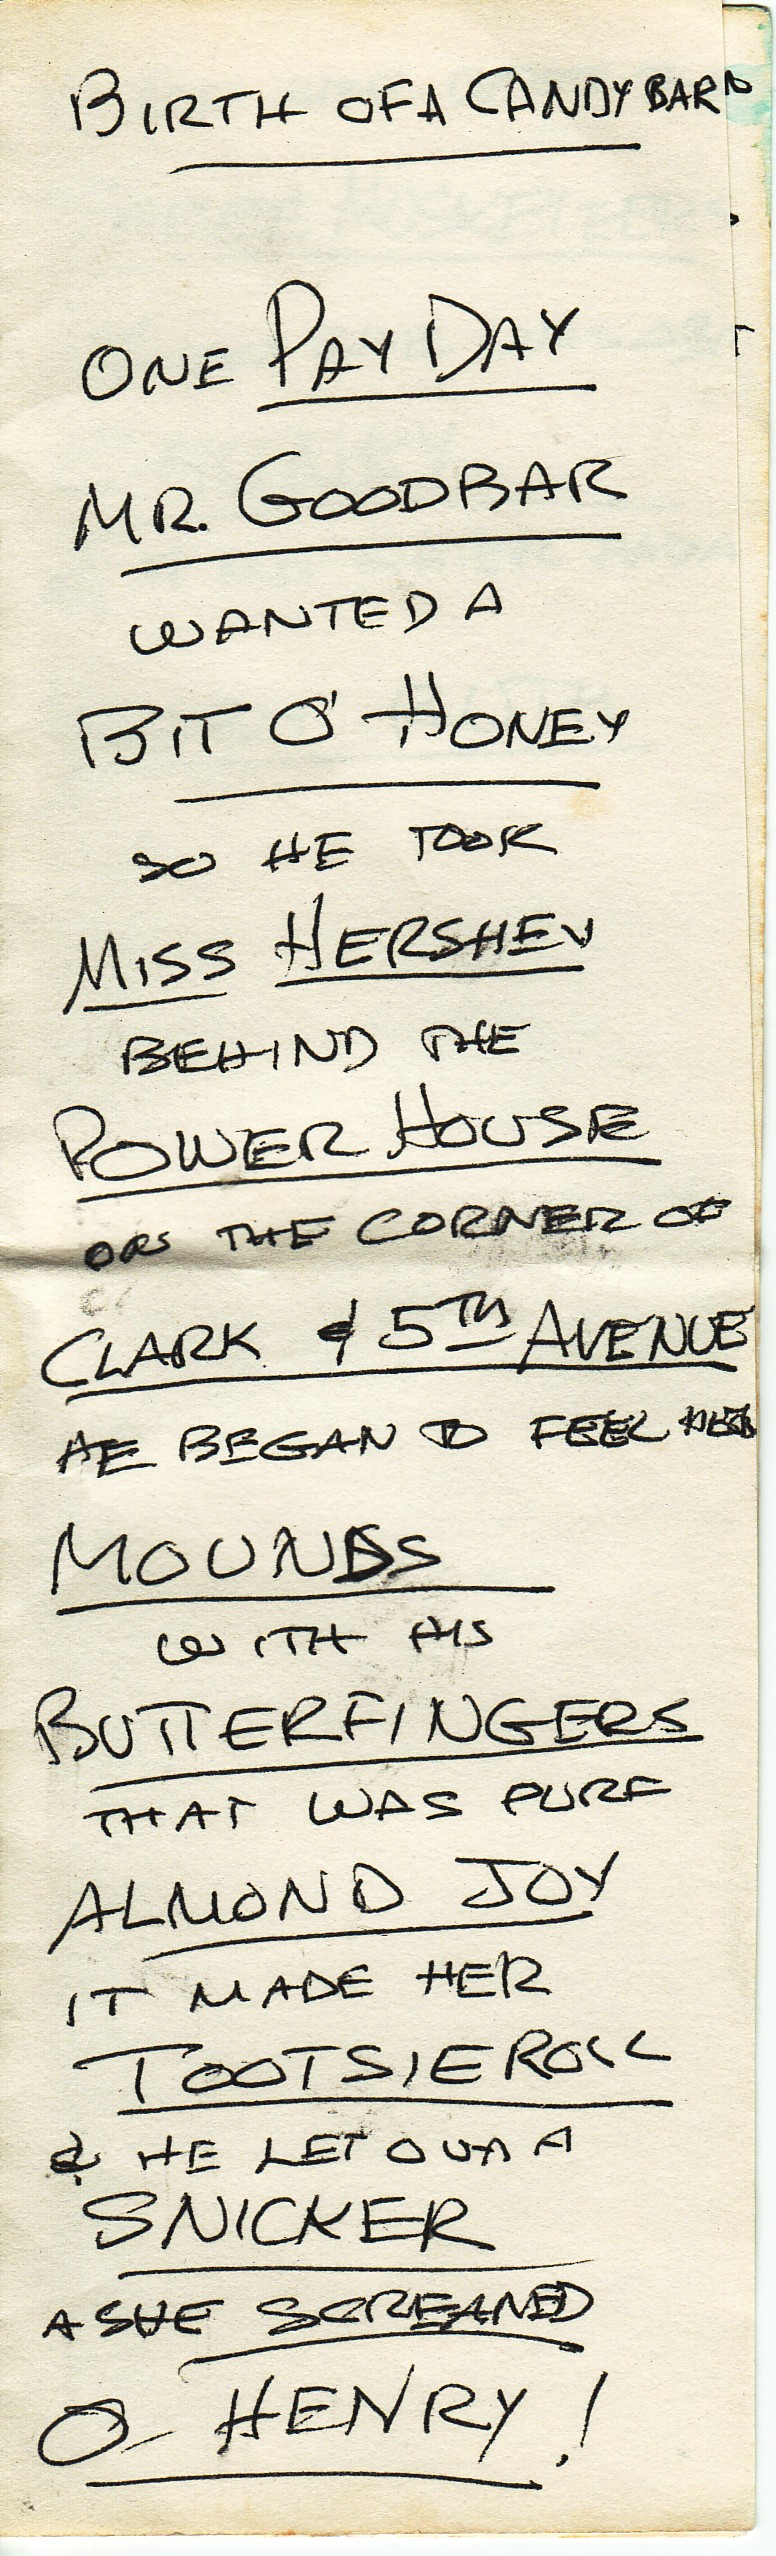 BIRTH OF A CANDY BAR
ONE PAY DAY
MR. GOODBAR
WANTED A
BIT O' HONEY
SO HE TOOK
MISS HERSHEY
BEHIND THE
POWER HOUSE
ON THE CORNER OF
CLARK & 5TH AVENUE
HE BEGAN TO FEEL HER
MOUNDS
WITH HIS
BUTTERFINGERS
THAT WAS PURE
ALMOND JOY
IT MADE HER
TOOTSIE ROLL
& HE LET OUT A
SNICKER
A SHE SCREAMED
O HENRY!